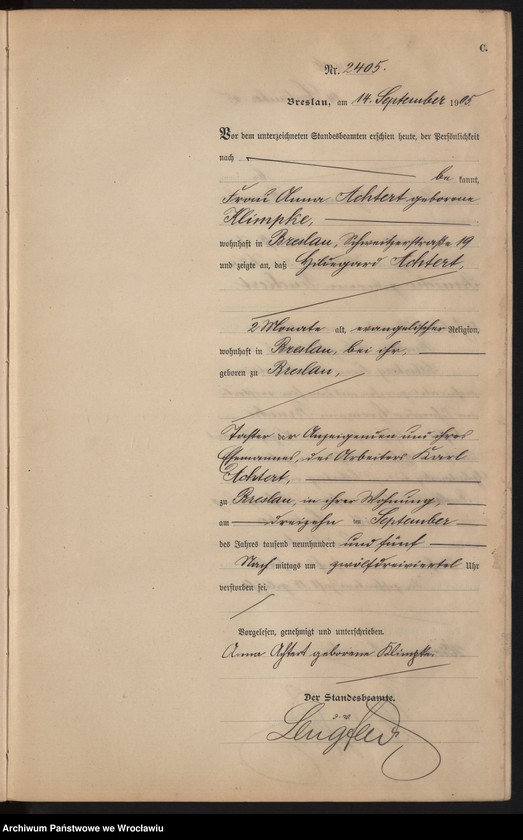 C.
Nr. 2405.
Breslau, am 14. September 1905
Vor dem unterzeichneten Standesbeamten erschien heute, der Persönlichkeit
nach
be kannt,
Frau Anna Achtert geborene
Klimpke,
wohnhaft in Breslau, Schweitzerstraße 19
und zeigte an, daß Hildegard Achtert,
2 Monate alt, evangelischer Religion,
wohnhaft in Breslau, bei ihr,
geboren zu Breslau,
Tochter der Anzeigenden und ihres
Ehemannes, des Arbeiters Karl
Achtert,
zu Breslau, in ihrer Wohnung,
am dreizehn ten September
des Jahres tausend neunhundert und fünf
Nach mittags um zwölfdreiviertel Uhr
verstorben sei.
Vorgelesen, genehmigt und unterschrieben.
Anna Achtert geborene Klimpke.
Der Standesbeamte.
Archiwum Państwowe we Wrocławiu